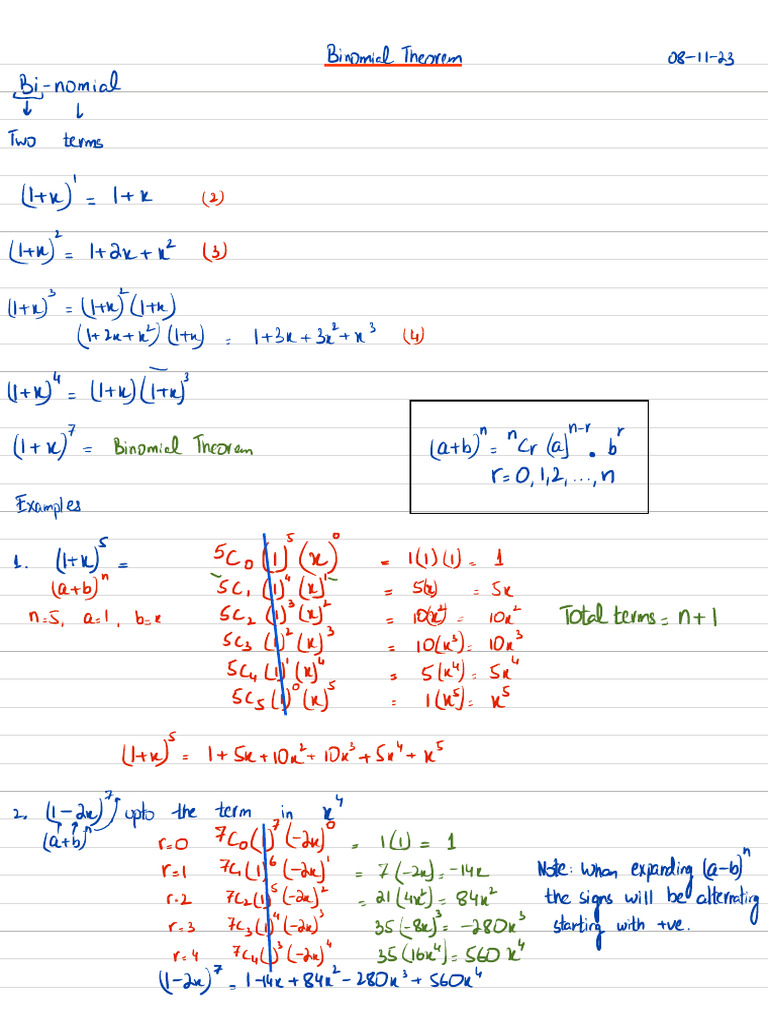 Binomial Theorem 08-11-23
Bi-nomial
↓ ↓
Two terms
(1+x)¹ = 1+x (2)
(1+x)² = 1+2x+x² (3)
(1+x)³ = (1+x)² (1+x)
(1+2x+x²) (1+x) = 1+3x+3x²+x³ (4)
(1+x)⁴ = (1+x) (1+x)³
(1+x)⁷ = Binomial Theorem
(a+b)ⁿ = ⁿCr (a)ⁿ⁻ʳ . bʳ
r=0,1,2,...,n
Examples
1. (1+x)⁵ = 5C₀ (1)⁵ (x)⁰ = 1(1)(1) = 1
(a+b)ⁿ 5C₁ (1)⁴ (x)¹ = 5(x) = 5x
n=5, a=1, b=x 5C₂ (1)³ (x)² = 10(x²) = 10x² Total terms = n+1
5C₃ (1)² (x)³ = 10(x³) = 10x³
5C₄ (1)¹ (x)⁴ = 5(x⁴) = 5x⁴
5C₅ (1)⁰ (x)⁵ = 1(x⁵) = x⁵
(1+x)⁵ = 1+5x+10x²+10x³+5x⁴+x⁵
2. (1-2x)⁷ upto the term in x⁴
(a+b)ⁿ
r=0 7C₀ (1)⁷ (-2x)⁰ = 1(1) = 1
r=1 7C₁ (1)⁶ (-2x)¹ = 7(-2x) = -14x
r=2 7C₂ (1)⁵ (-2x)² = 21(4x²) = 84x²
r=3 7C₃ (1)⁴ (-2x)³ 35(-8x)³ = -280x³
r=4 7C₄ (1)³ (-2x)⁴ 35(16x⁴) = 560x⁴
Note: when expanding (a-b)ⁿ
the signs will be alternating
starting with +ve.
(1-2x)⁷ = 1-14x+84x²-280x³+560x⁴